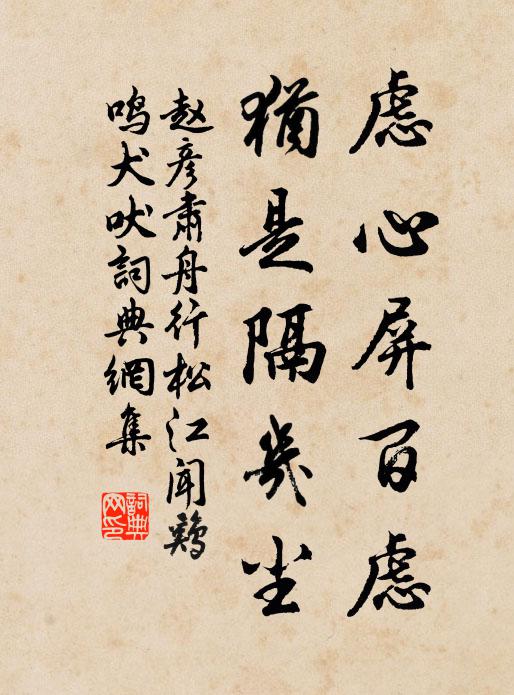 虑心屏百虑
犹是隔几尘
赵彦肃舟行松江闻鸡
鸣犬吠詞典網集
詞典网印